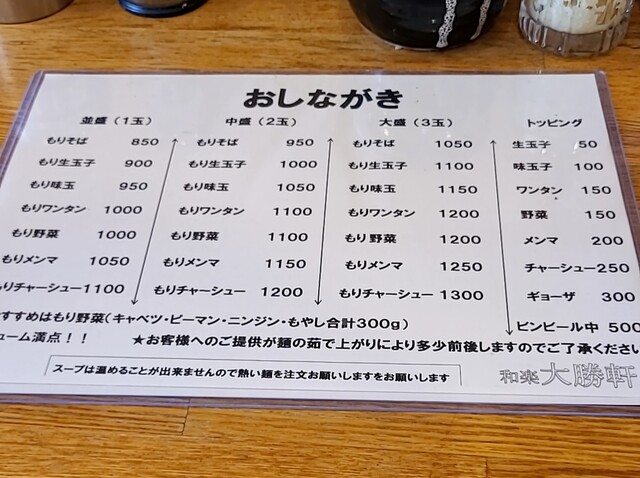 おしながき
並盛(1玉) 中盛(2玉) 大盛(3玉) トッピング
もりそば 850 もりそば 950 もりそば 1050 生玉子 50
もり生玉子 900 もり生玉子 1000 もり生玉子 1100 味玉子 100
もり味玉 950 もり味玉 1050 もり味玉 1150 ワンタン 150
もりワンタン 1000 もりワンタン 1100 もりワンタン 1200 野菜 150
もり野菜 1000 もり野菜 1100 もり野菜 1200 メンマ 200
もりメンマ 1050 もりメンマ 1150 もりメンマ 1250 チャーシュー250
もりチャーシュー1100 もりチャーシュー 1200 もりチャーシュー 1300 ギョーザ 300
ビンビール中 500
すすめはもり野菜(キャベツ・ピーマン・ニンジン・もやし合計300g)
ューム満点!! ★お客様へのご提供が麺の茹で上がりにより多少前後しますのでご了承ください
スープは温めることが出来ませんので熱い麺を注文お願いしますをお願いします
和楽 大勝軒